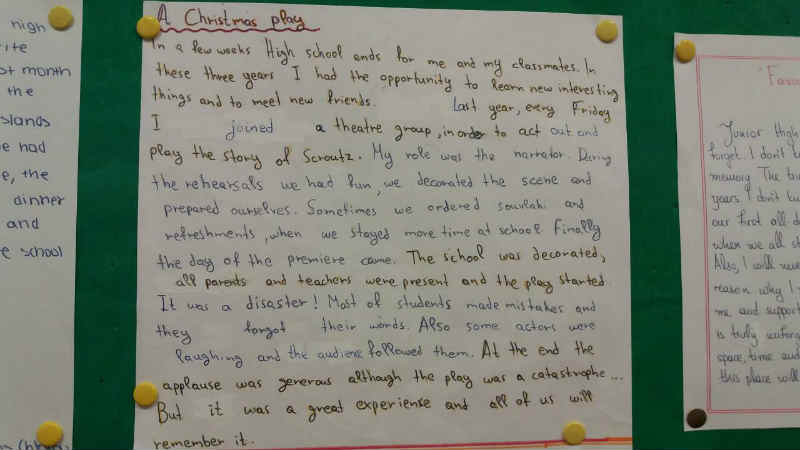 nigh
ite
st month
the
slands
e had
e, the
dinner
and
e school
A Christmas play
In a few weeks High school ends for me and my classmates. In
these three years I had the opportunity to learn new interesting
things and to meet new friends. Last year, every Friday
I joined a theatre group, in order to act out and
play the story of Scroutz. My role was the narrator. During
the rehearsals we had fun, we decorated the scene and
prepared ourselves. Sometimes we ordered souvlaki and
refreshments, when we stayed more time at school. Finally
the day of the premiere came. The school was decorated,
all parents and teachers were present and the play started.
It was a disaster! Most of students made mistakes and
they forgot their words. Also some actors were
laughing and the audience followed them. At the end the
applause was generous although the play was a catastrophe...
But it was a great experiense and all of us will
remember it.
"Favou
Junior High
forget. I don't
memory. The
years. I don't
our first all
when we all
Also, I will
reason why I
me and support
is truly
space, time and
this place will